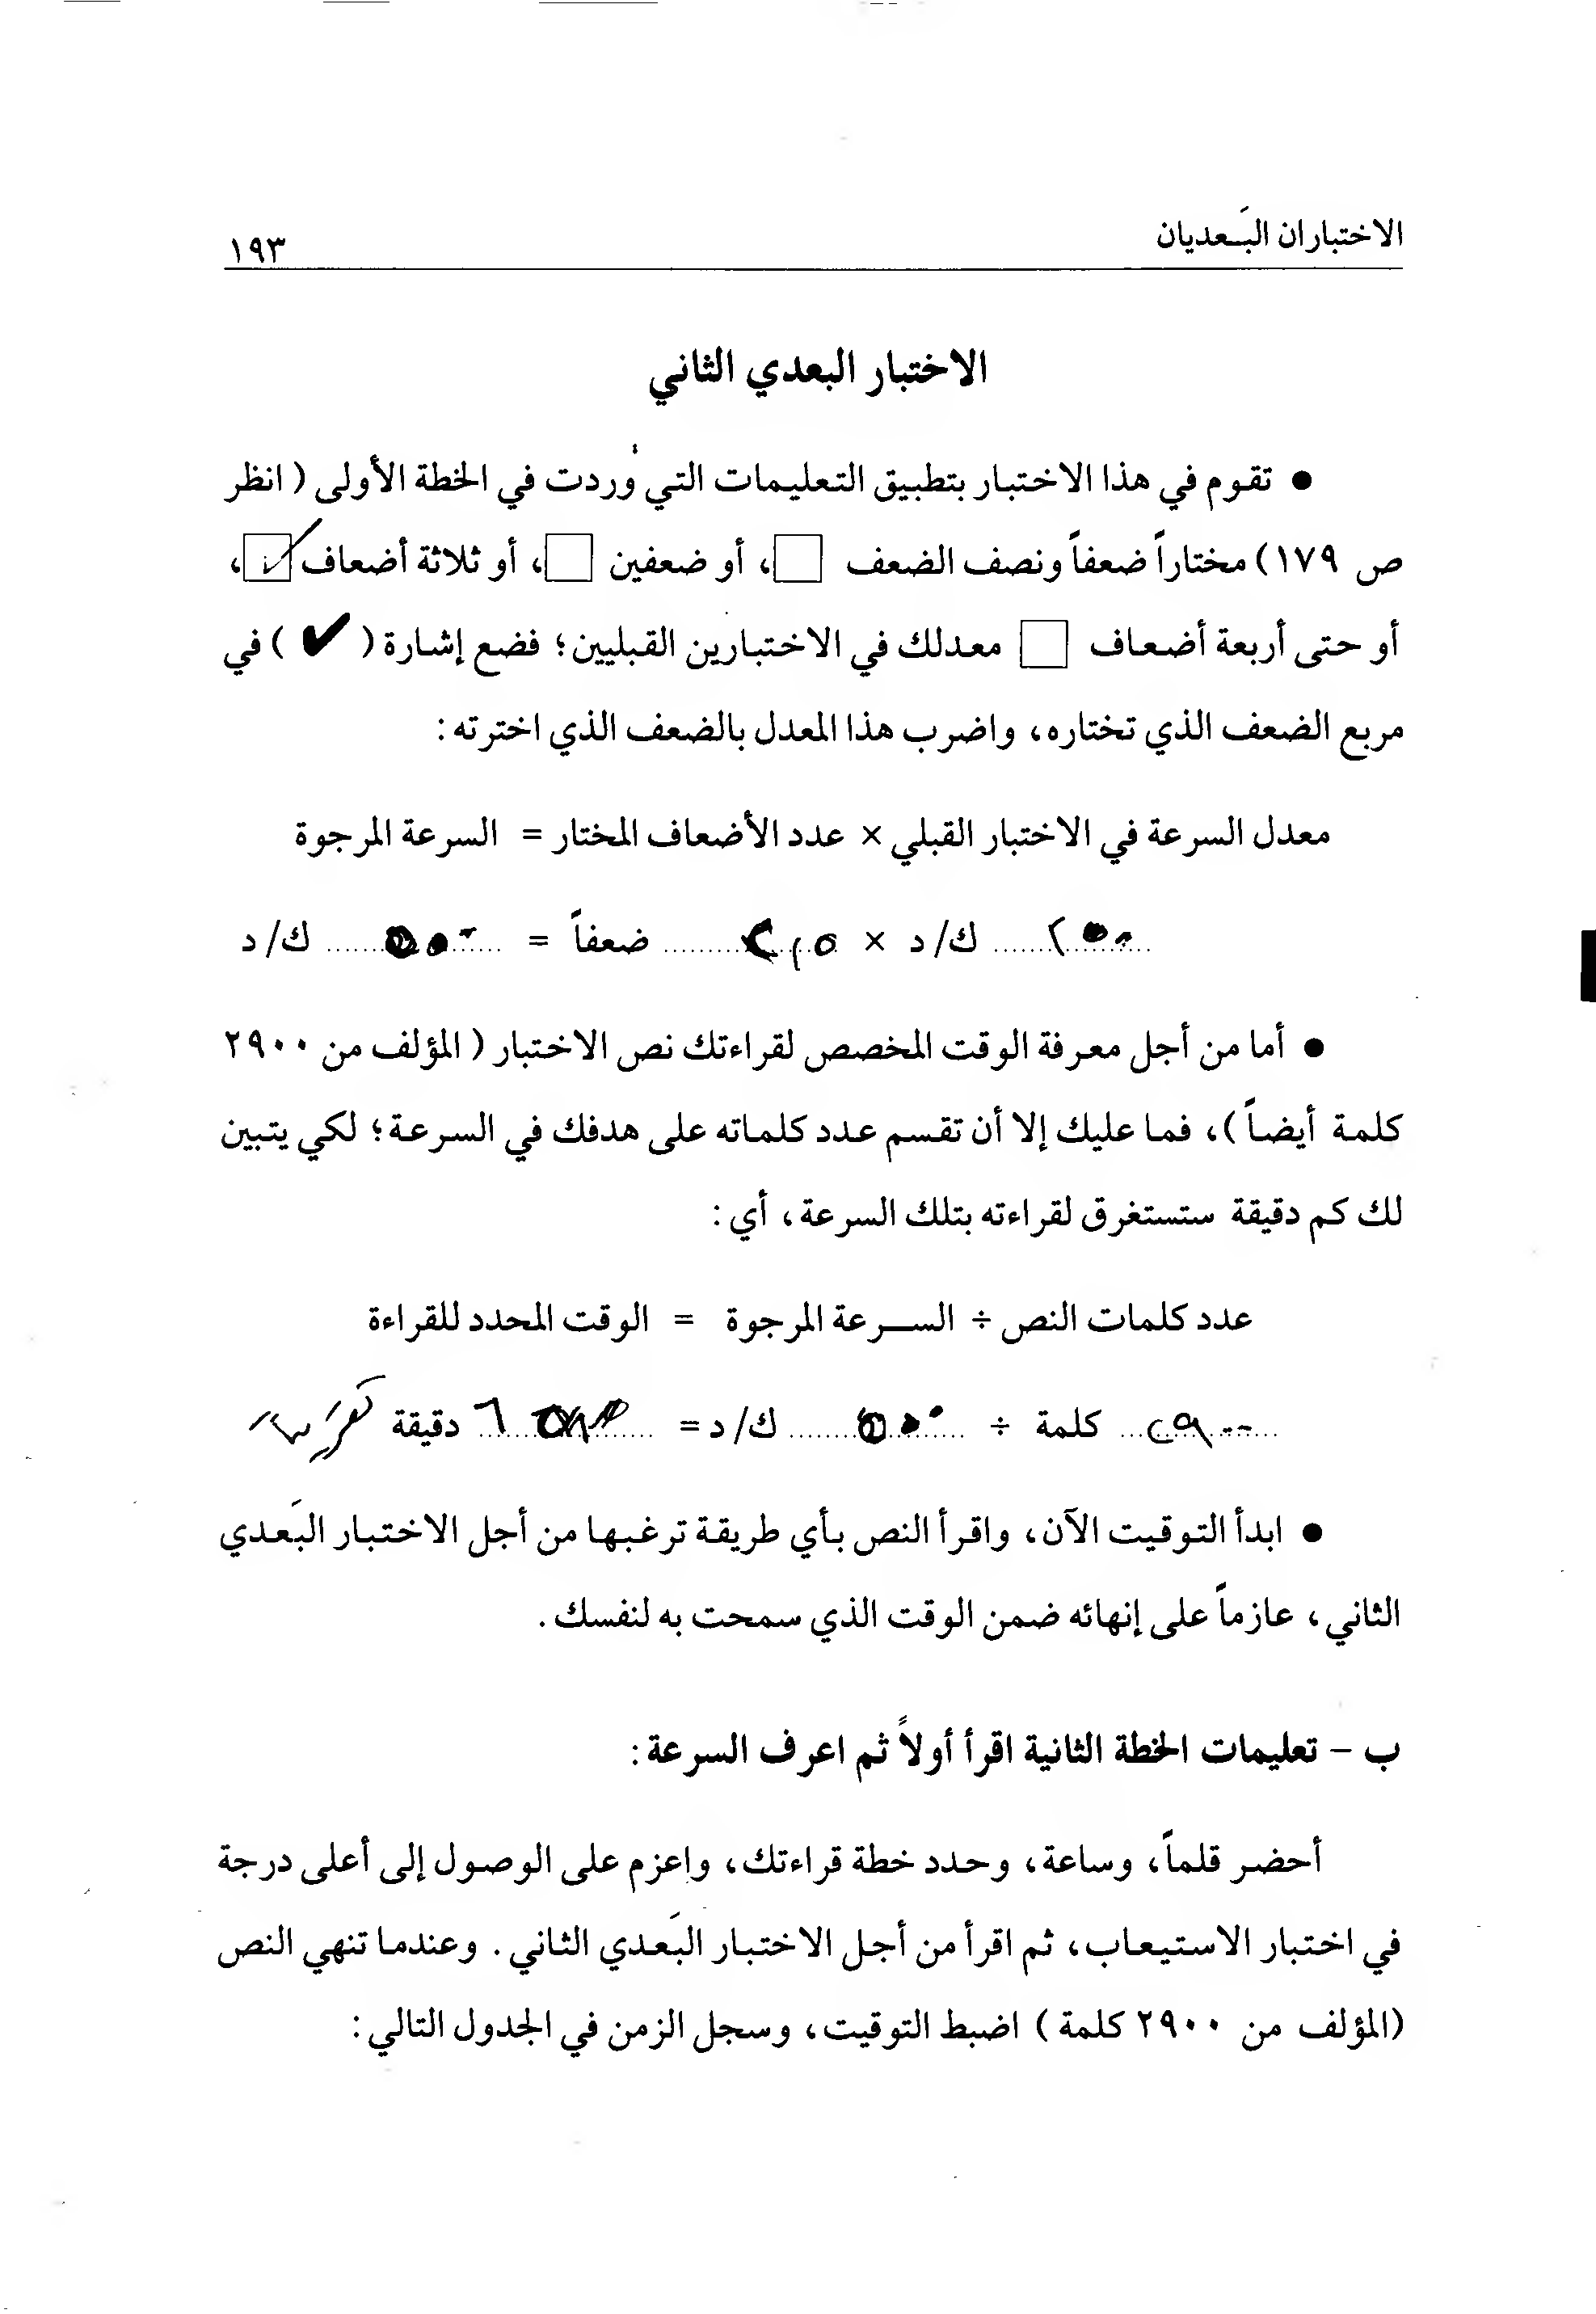 الاختباران البَـعديان
١٩٣
الاختبار البعدي الثاني
● تقوم في هذا الاختبار بتطبيق التعليمات التي وردت في الخطة الأولى ( انظر
ص ١٧٩) مختاراً ضعفاً ونصف الضعف □، أو ضعفين □، أو ثلاثة أضعاف ☑،
أو حتى أربعة أضعاف □ معدلك في الاختبارين القبليين؛ فضع إشارة ( ✔ ) في
مربع الضعف الذي تختاره، واضرب هذا المعدل بالضعف الذي اخترته:
معدل السرعة في الاختبار القبلي × عدد الأضعاف المختار = السرعة المرجوة
ك/ د × ضعفاً = ك/ د
● أما من أجل معرفة الوقت المخصص لقراءتك نص الاختبار ( المؤلف من ٢٩٠٠
كلمة أيضاً )، فما عليك إلا أن تقسم عدد كلماته على هدفك في السرعة؛ لكي يتبين
لك كم دقيقة ستستغرق لقراءته بتلك السرعة، أي:
عدد كلمات النص ÷ السـرعة المرجوة = الوقت المحدد للقراءة
٢٩٠٠ كلمة ÷ ك/ د = دقيقة
● ابدأ التوقيت الآن، واقرأ النص بأي طريقة ترغبها من أجل الاختبار البَعدي
الثاني، عازماً على إنهائه ضمن الوقت الذي سمحت به لنفسك.
ب – تعليمات الخطة الثانية اقرأ أولاً ثم اعرف السرعة:
أحضر قلماً، وساعة، وحدد خطة قراءتك، واعزم على الوصول إلى أعلى درجة
في اختبار الاستيعاب، ثم اقرأ من أجل الاختبار البَعدي الثاني. وعندما تنهي النص
(المؤلف من ٢٩٠٠ كلمة ) اضبط التوقيت، وسجل الزمن في الجدول التالي: